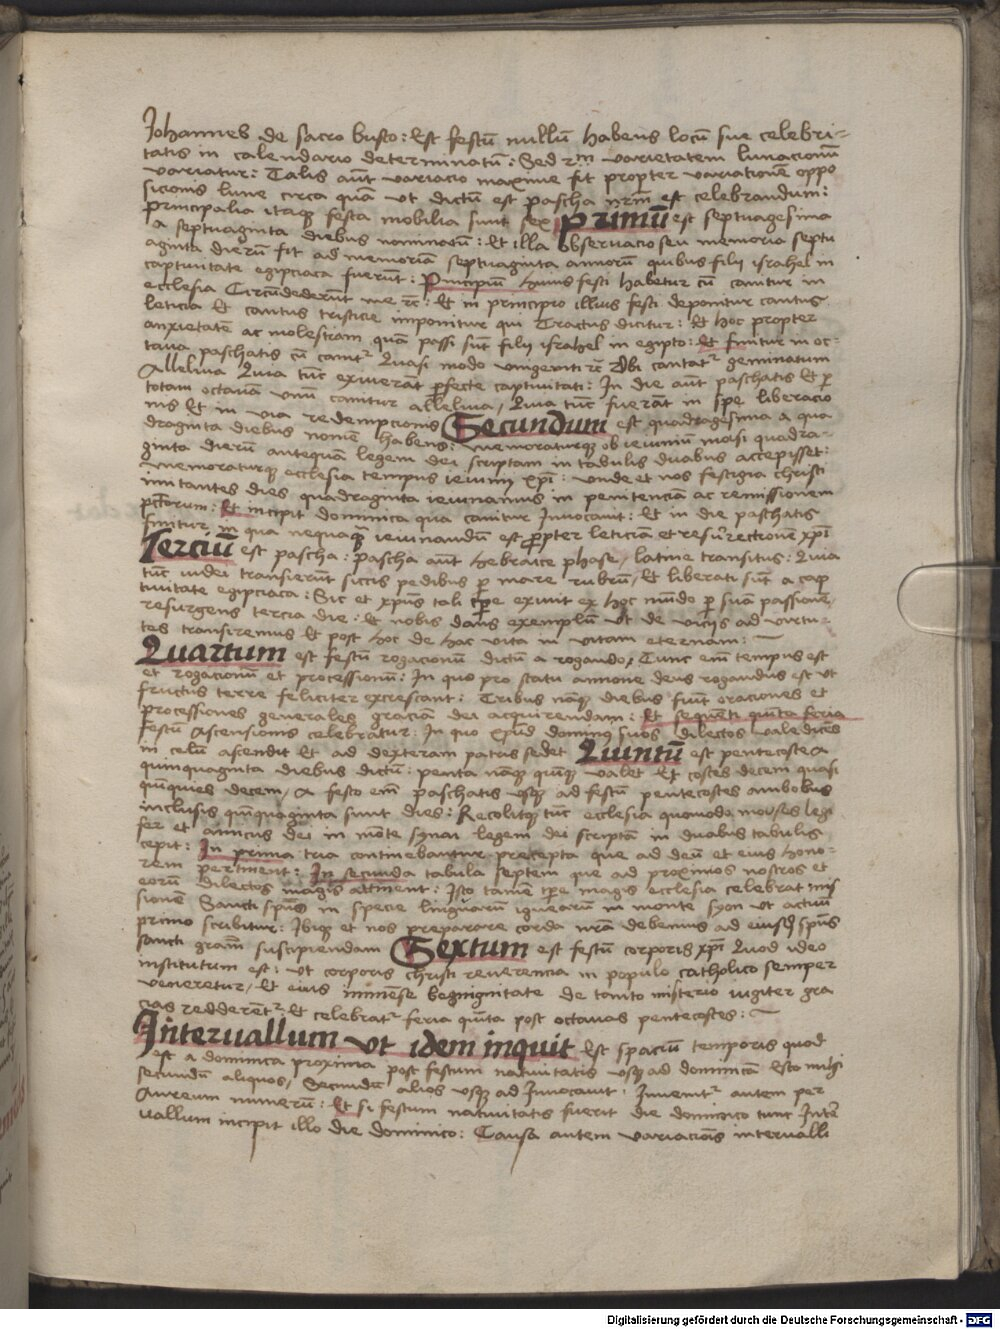 Johannes de sacro busto: Est festū nullū habens locū sue celebri-
tatis in calendario determinatū: Sed rm varietatem lunacionū
variatur: Talis aūt variacio maxime fit propter variationē oppo
sicionis lune circa quā ut dictū est pascha nrm̄ est celebrandum:
Principalia itaq festa mobilia sunt sex Primū est septuagesima
a septuaginta diebus nominatū: Et illa observacio seu memoria septu
aginta dierū fit ad memoriā septuaginta annorū quibus filij israhel in
captivitate egipciaca fuerūt: Principiū huius festi habetur cū canitur in
ecclesia Circūdederūt me rc: Et in principio illius festi deponitur cantus
leticie Et cantus tristicie imponitur qui Tractus dicitur: Et hoc propter
anxietatē ac molestiam quā passi sūt filij israhel in egipto: Et finitur in oc-
tava paschatis cū canitr Quasi modo geniti rc Ubi cantatr geminatum
Allelvia Quia tūc exiverāt pfecte captivitati: In die aūt paschatis Et p
totam octavā unū canitur allelvia, Quia tūc fuerāt in spe liberacio
nis Et in via redempcionis Secundum est quadragesima a qua
draginta diebus nomē habens: memoraturq ob ieiuniū moisi quadra-
ginta dierū antequā legem dei scriptam in tabulis duabus accepisset:
memoraturq ecclesia tempus ieiunij xpi: unde et nos festigia christi
imitantes dies quadraginta ieiunamus in penitenciā ac remissionem
pctorum: Et incipit dominica qua canitur Invocavit: Et in die paschatis
finitur in qua nequaq ieiunandū est propter leticiā et resurrectionē xpi
Terciū est pascha: Pascha aūt hebraice phase, latine transitus: Quia
tūc iudei transierūt siccis pedibus p mare rubrū, Et liberati sūt a cap
tivitate egipciaca: Sic et xpus tali tpe exivit ex hoc mūdo p suā passionē,
resurgens tercia die: Et nobis dans exemplū ut de vicijs ad virtu-
tes transiremus Et post hoc de hac vita in vitam eternam:
Quartum est festū rogacionū dictū a rogando, Tunc em̄ tempus est
et rogacionū et processionū: In quo pro statu annone deus rogandus est ut
fructus terre feliciter excrescant: Tribus nāq diebus fiūt oraciones et
processiones generales graciam dei acquirendam: Et sequēti quīta feria
Festū Ascensionis celebratur: In quo dominus suos dilectos valedicēs
in celū ascendit Et ad dexteram patris sedet Quintū est pentecoste a
quinquaginta diebus dictū: penta nāq quīq valet Et costes decem quasi
quīquies decem, A festo em̄ paschatis usq ad festū pentecostes ambobus
inclusis quīquaginta sunt dies: Recolitq tūc ecclesia quomodo moyses legi
fer et amicus dei in mōte synai legem dei scriptā in duabus tabulis
cepit: In prima tria continebantur precepta que ad deū et eius hono-
rem pertinent: In secunda tabula septem que ad proximos nostros et
eorū dilectos magis attinent: Isto tamē tpe magis ecclesia celebrat mis
sionē Sancti spūs in specie linguarū ignearū in monte syon ut actuū
primo scribitur: Ibiq et nos preparare corda nrā debemus ad eiusdē spūs
sancti gram̄ suscipiendam Sextum est festū corporis xpi Quod ideo
institutum est: ut corporis christi reverencia in populo catholico semper
veneretur, Et eius immēse begnignitate de tanto misterio iugiter gra
cias redderētr Et celebratr feria quīta post octavas pentecostes:
Intervallum ut idem inquit Est spaciū temporis quod
est a dominica proxima post festum nativitatis usq ad dominicā Esto mihi
secundū aliquos, Secundū alios usq ad Invocavit: Invenitr autem per
Aureum numerū: Et si festum nativitatis fuerit die dominico tunc Inter
vallum incipit illo die dominico: Causa autem variacōis intervalli
Digitalisierung gefördert durch die Deutsche Forschungsgemeinschaft - DFG